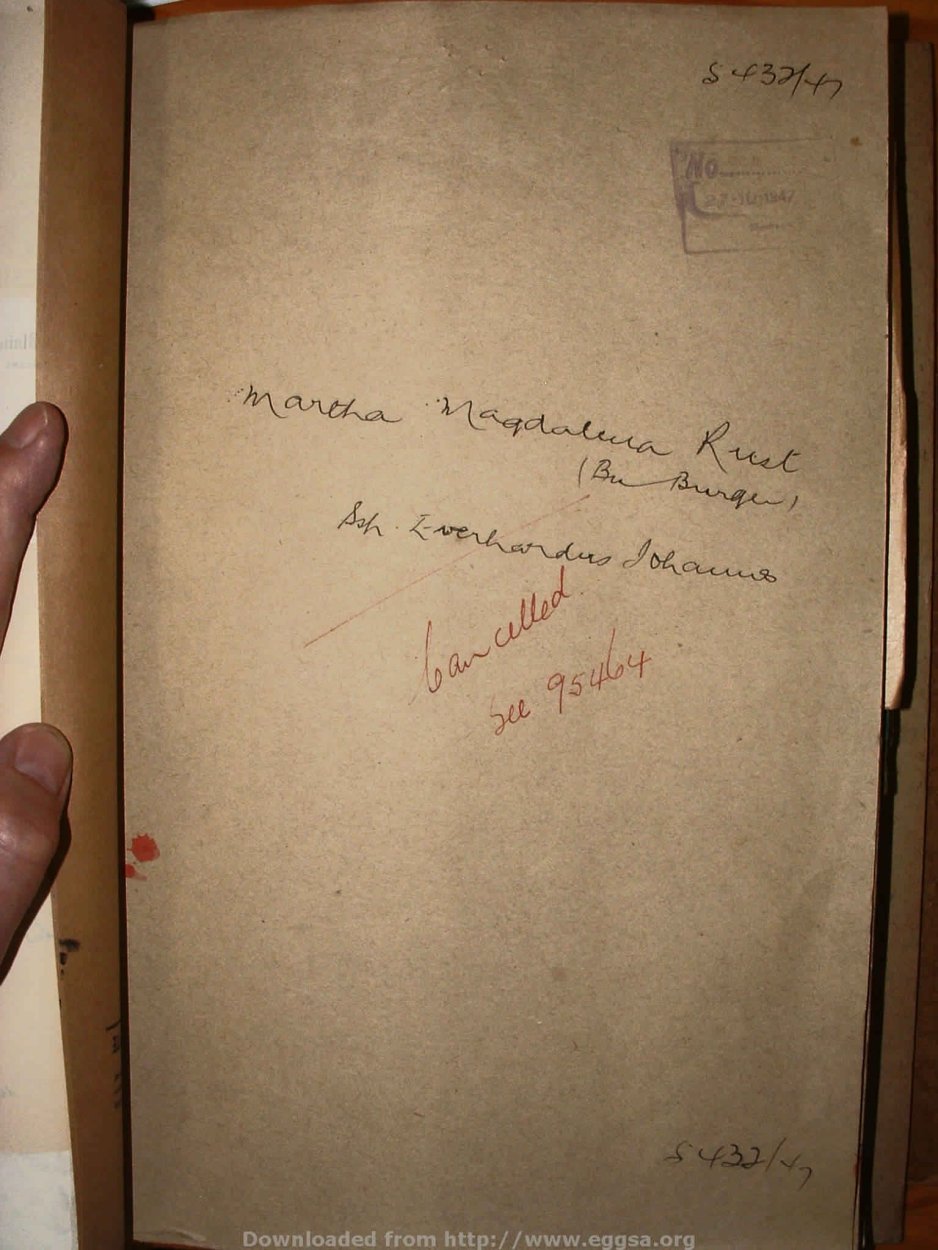 5432/47
No
Martha Magdalena Rust
(Bn Burger)
Ssp. Everhardus Johannes
Cancelled.
See 95464
5432/47
Downloaded from http://www.eggsa.org